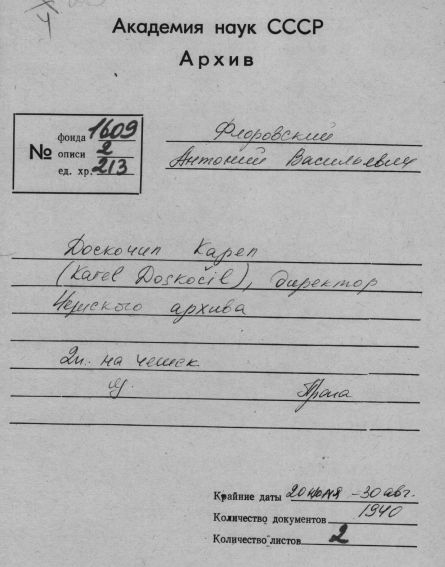 Академия наук СССР
Архив
№ фонда 1609
описи 2
ед. хр. 213
Флоровский
Антоний Васильевич
Доскочил Карел
(Karel Doskočil), директор
Чешского архива
2п. на чешск
Прага
Крайние даты 20 июня - 30 авг.
1940
Количество документов
Количество листов 2